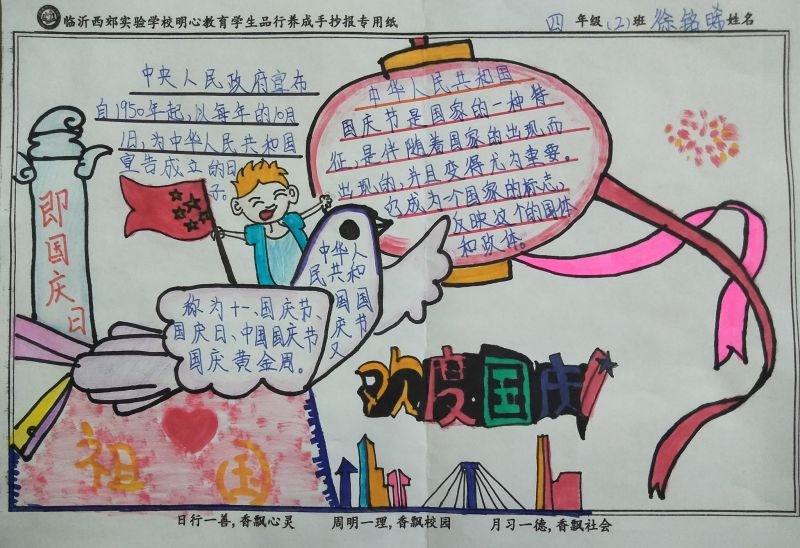 临沂西郊实验学校明心教育学生品行养成手抄报专用纸
四 年级 (2) 班 徐铭晞 姓名
中央人民政府宣布
自1950年起,以每年的10月
1日,为中华人民共和国
宣告成立的日
子。
即国庆日
中华人民共和国
国庆节是国家的一种特
征,是伴随着国家的出现而
出现的,并且变得尤为重要。
仍成为一个国家的标志,
反映这个的国体
和政体。
中华人
民共和
国国
庆节
又
称为十一、国庆节、
国庆日、中国国庆节
国庆黄金周。
欢度国庆
祖国
日行一善,香飘心灵 周明一理,香飘校园 月习一德,香飘社会